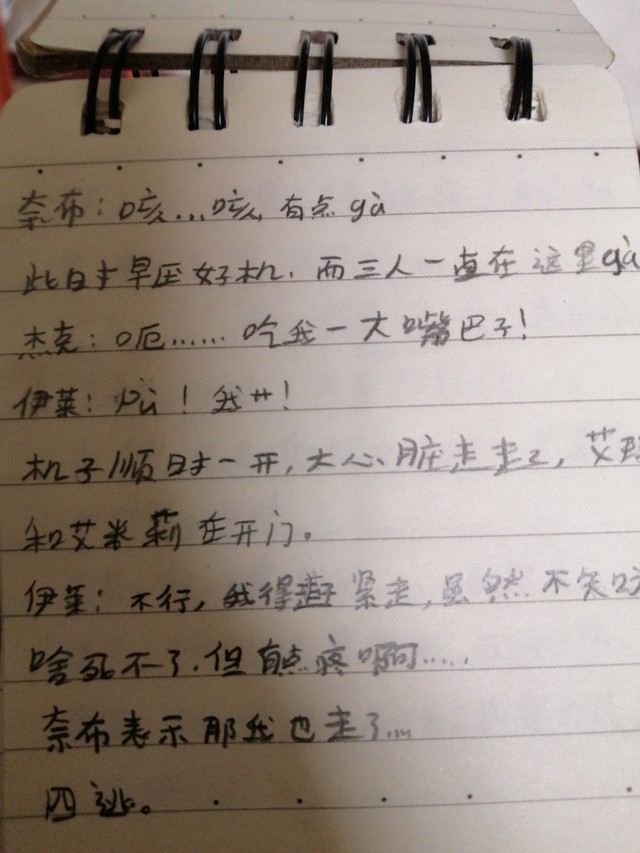 奈布：咳...咳，有点 gà
此时早压好机，而三人一直在这里gà
杰克：呃......吃我一大嘴巴子！
伊莱： ！我艹！
机子顺时一开，大心脏走走了，艾
和艾米莉在开门。
伊莱：不行，我得赶紧走，虽然不知
啥死不了，但有点疼啊.....
奈布表示那我也走了...
四逃。